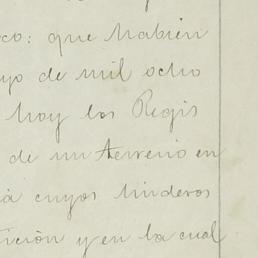 co: que habién
yo de mil ocho
hoy los Regis
de un terreno en
á cuyos linderos
ición y en la cual